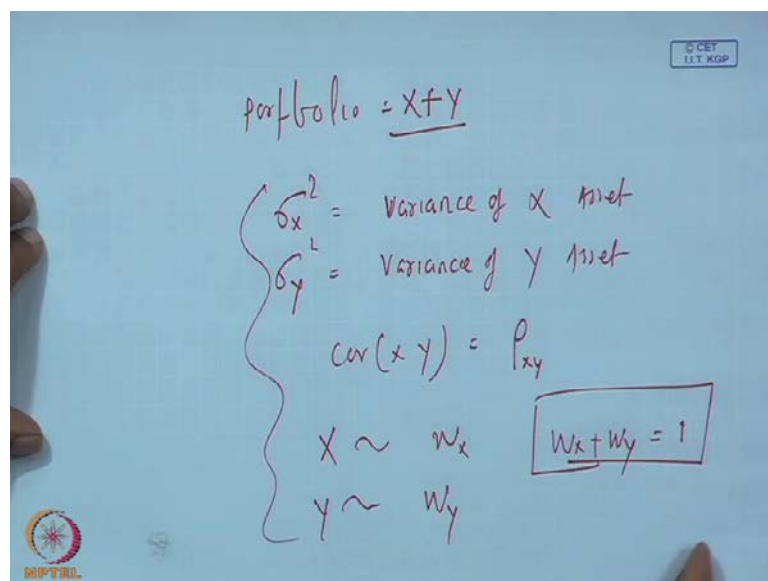 © CET
I.I.T. KGP
portfolio = X+Y
σx² = variance of X Asset
σy² = variance of Y Asset
cor(x y) = ρxy
X ~ Wx
Wx + Wy = 1
Y ~ Wy
NPTEL